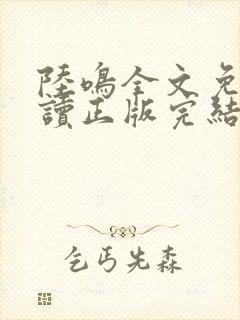 陸鳴全文免
讀正版完結
乞丐先森